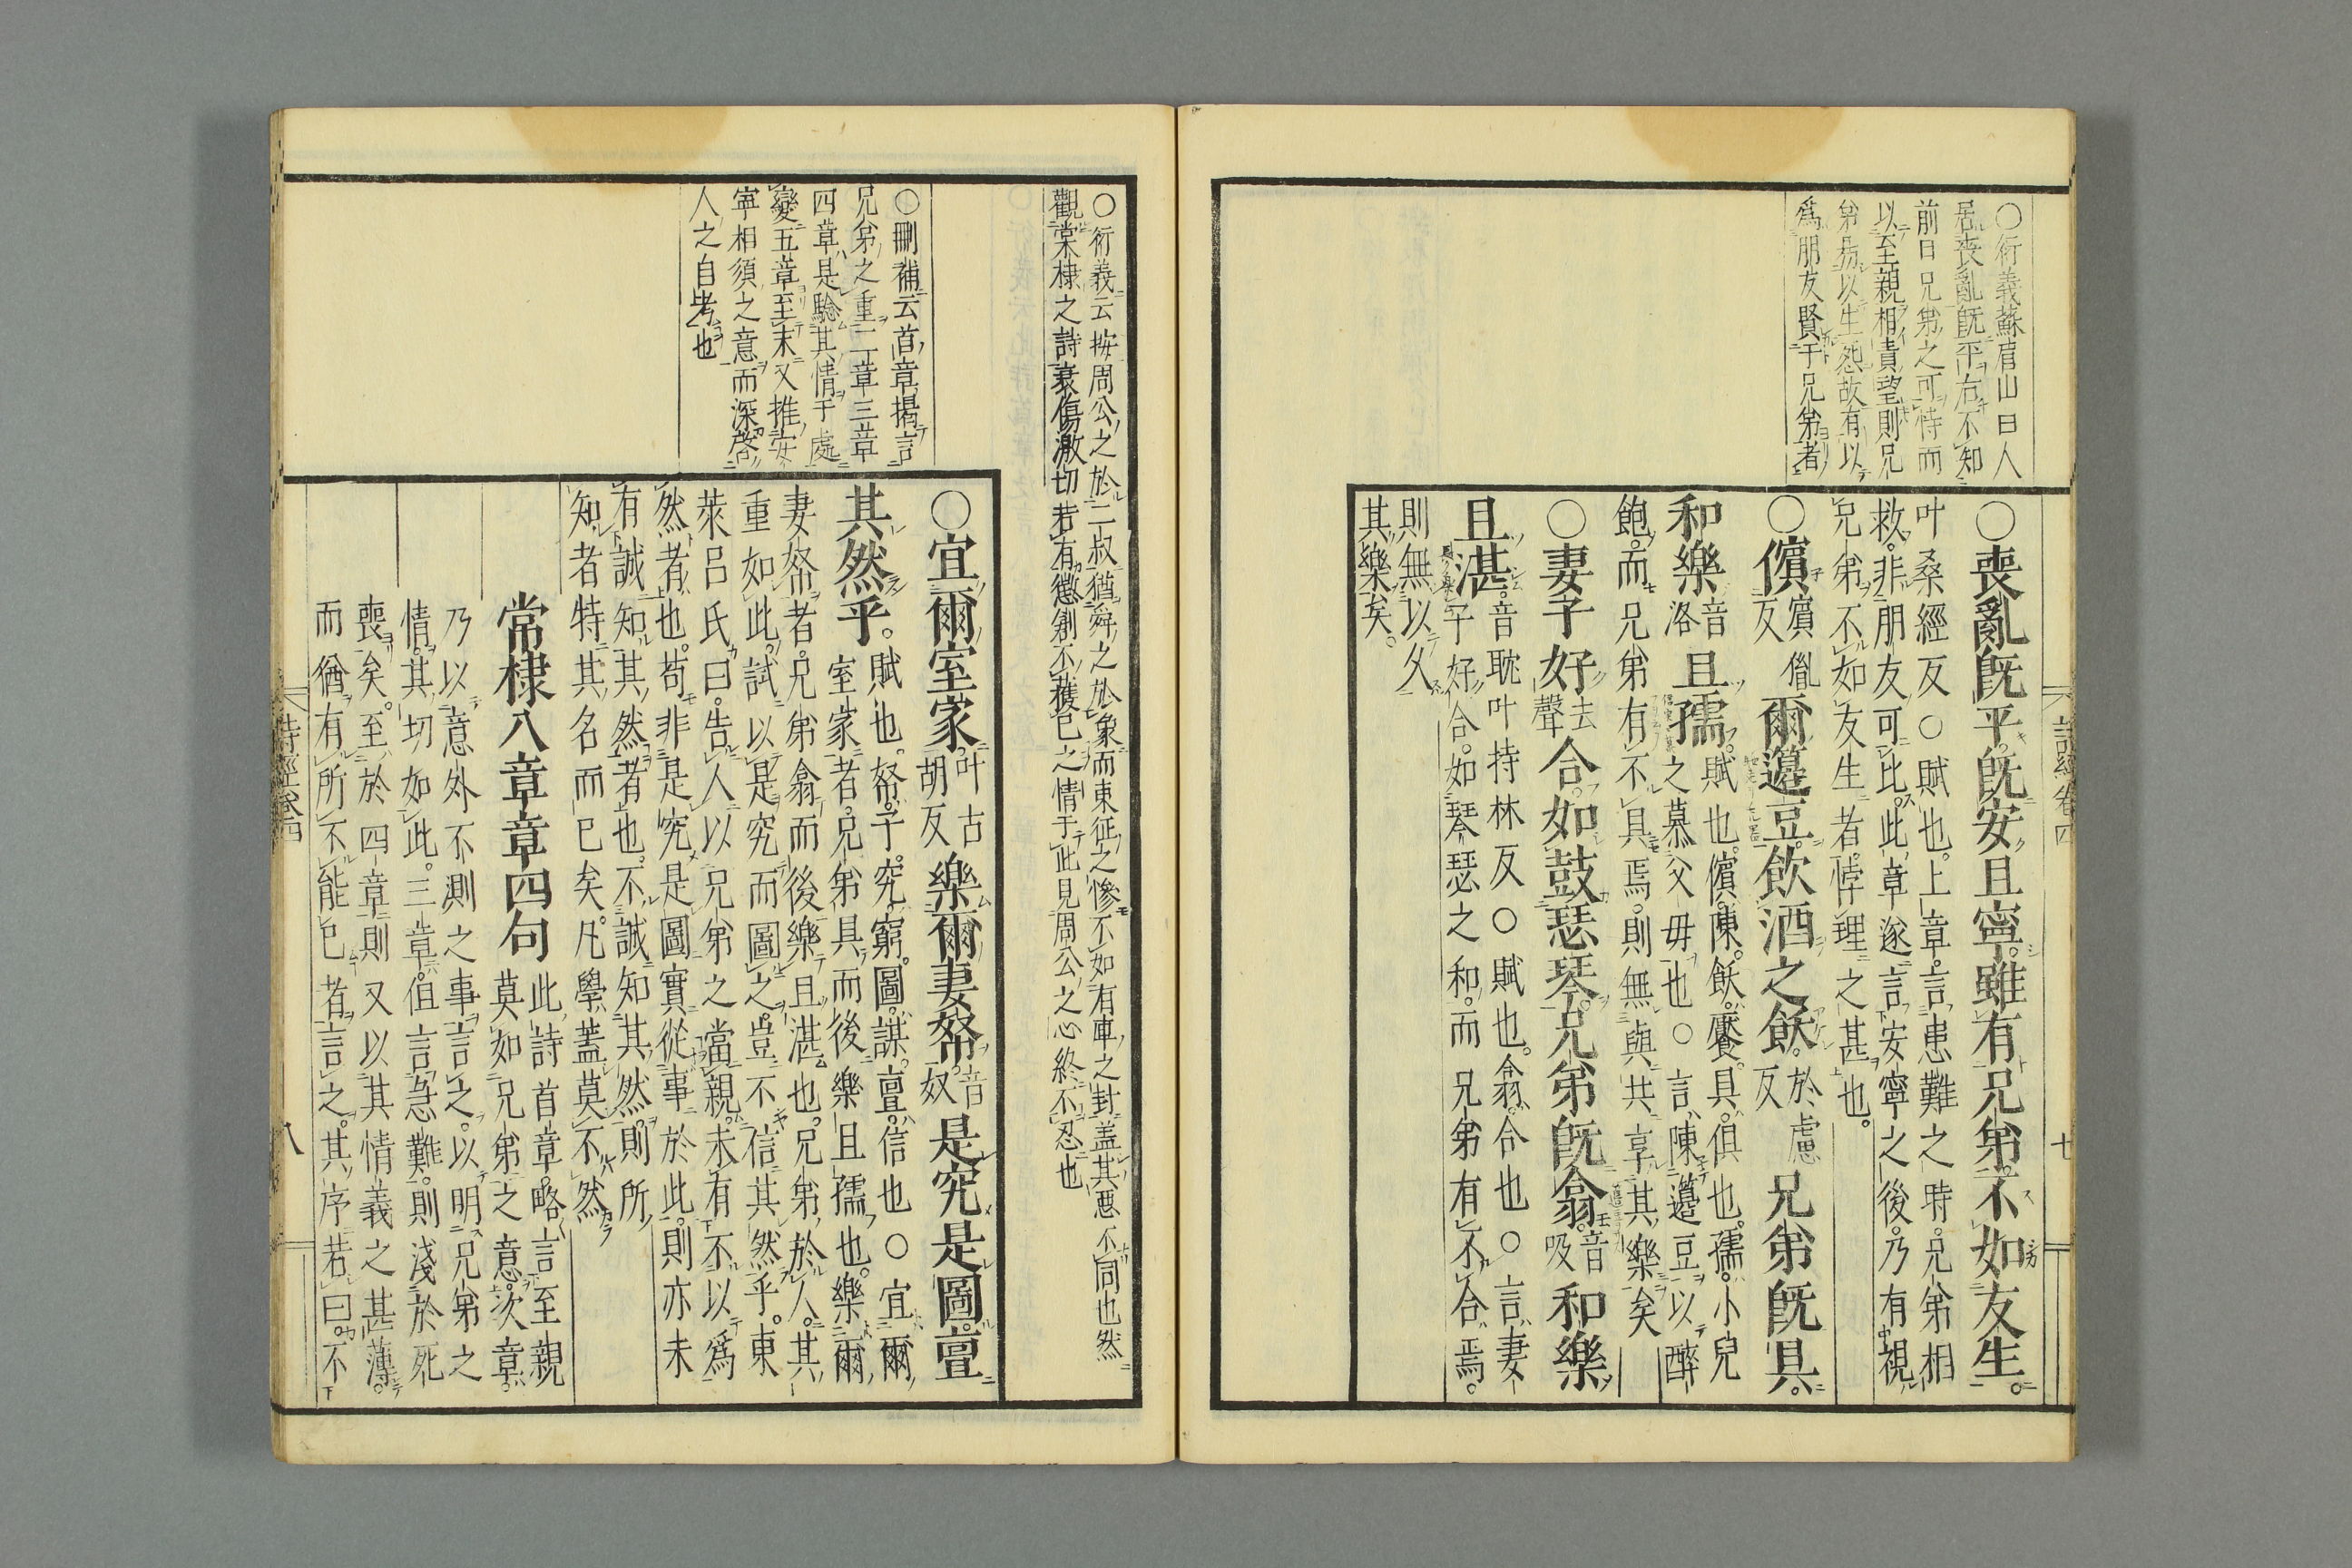 ○衍義蘇眉山曰人
居喪亂旣平右不知
前日兄弟之可恃而
以至親相責望則兄
弟易以生怨故有以
爲朋友賢于兄弟者
○喪亂旣平旣安且寧雖有兄弟不如友生
叶桑經反○賦也上章言患難之時兄弟相
救非朋友可比此章遂言安寧之後乃有視
兄弟不如友生者悖理之甚也
○儐賓胤反爾籩豆飮酒之飫於慮反兄弟旣具
和樂音洛且孺賦也儐陳飫饜具俱也孺小兒
之慕父母也○言陳籩豆以醉
飽而兄弟有不具焉則無與共享其樂矣
○妻子好去聲合如鼓瑟琴兄弟旣翕音吸和樂
且湛音耽叶持林反○賦也翕合也○言妻
子好合如琴瑟之和而兄弟有不合焉
則無以久
其樂矣
詩經卷四
七
○衍義云按周公之於二叔猶舜之於象而東征之慘不如有庳之封蓋其惡不同也然
觀棠棣之詩哀傷激切若有懲創不獲已之情于此見周公之心終不忍也
○刪補云首章揭言
兄弟之重二章三章
四章是驗其情于處
變五章至末又推安
寧相須之意而深啓
人之自考也
○宜爾室家叶古胡反樂爾妻帑音奴是究是圖亶
其然乎賦也帑子究窮圖謀亶信也○宜爾
室家者兄弟具而後樂且孺也樂爾
妻帑者兄弟翕而後樂且湛也兄弟於人其
重如此試以是究而圖之豈不信其然乎東
萊呂氏曰告人以兄弟之當親未有不以爲
然者也苟非是究是圖實從事於此則亦未
有誠知其然者也不誠知其然則所
知者特其名而已矣凡學蓋莫不然
常棣八章章四句此詩首章略言至親
莫如兄弟之意次章
乃以意外不測之事言之以明兄弟之
情其切如此三章但言急難則淺於死
喪矣至於四章則又以其情義之甚薄
而猶有所不能已者言之其序若曰不
詩經卷四
八